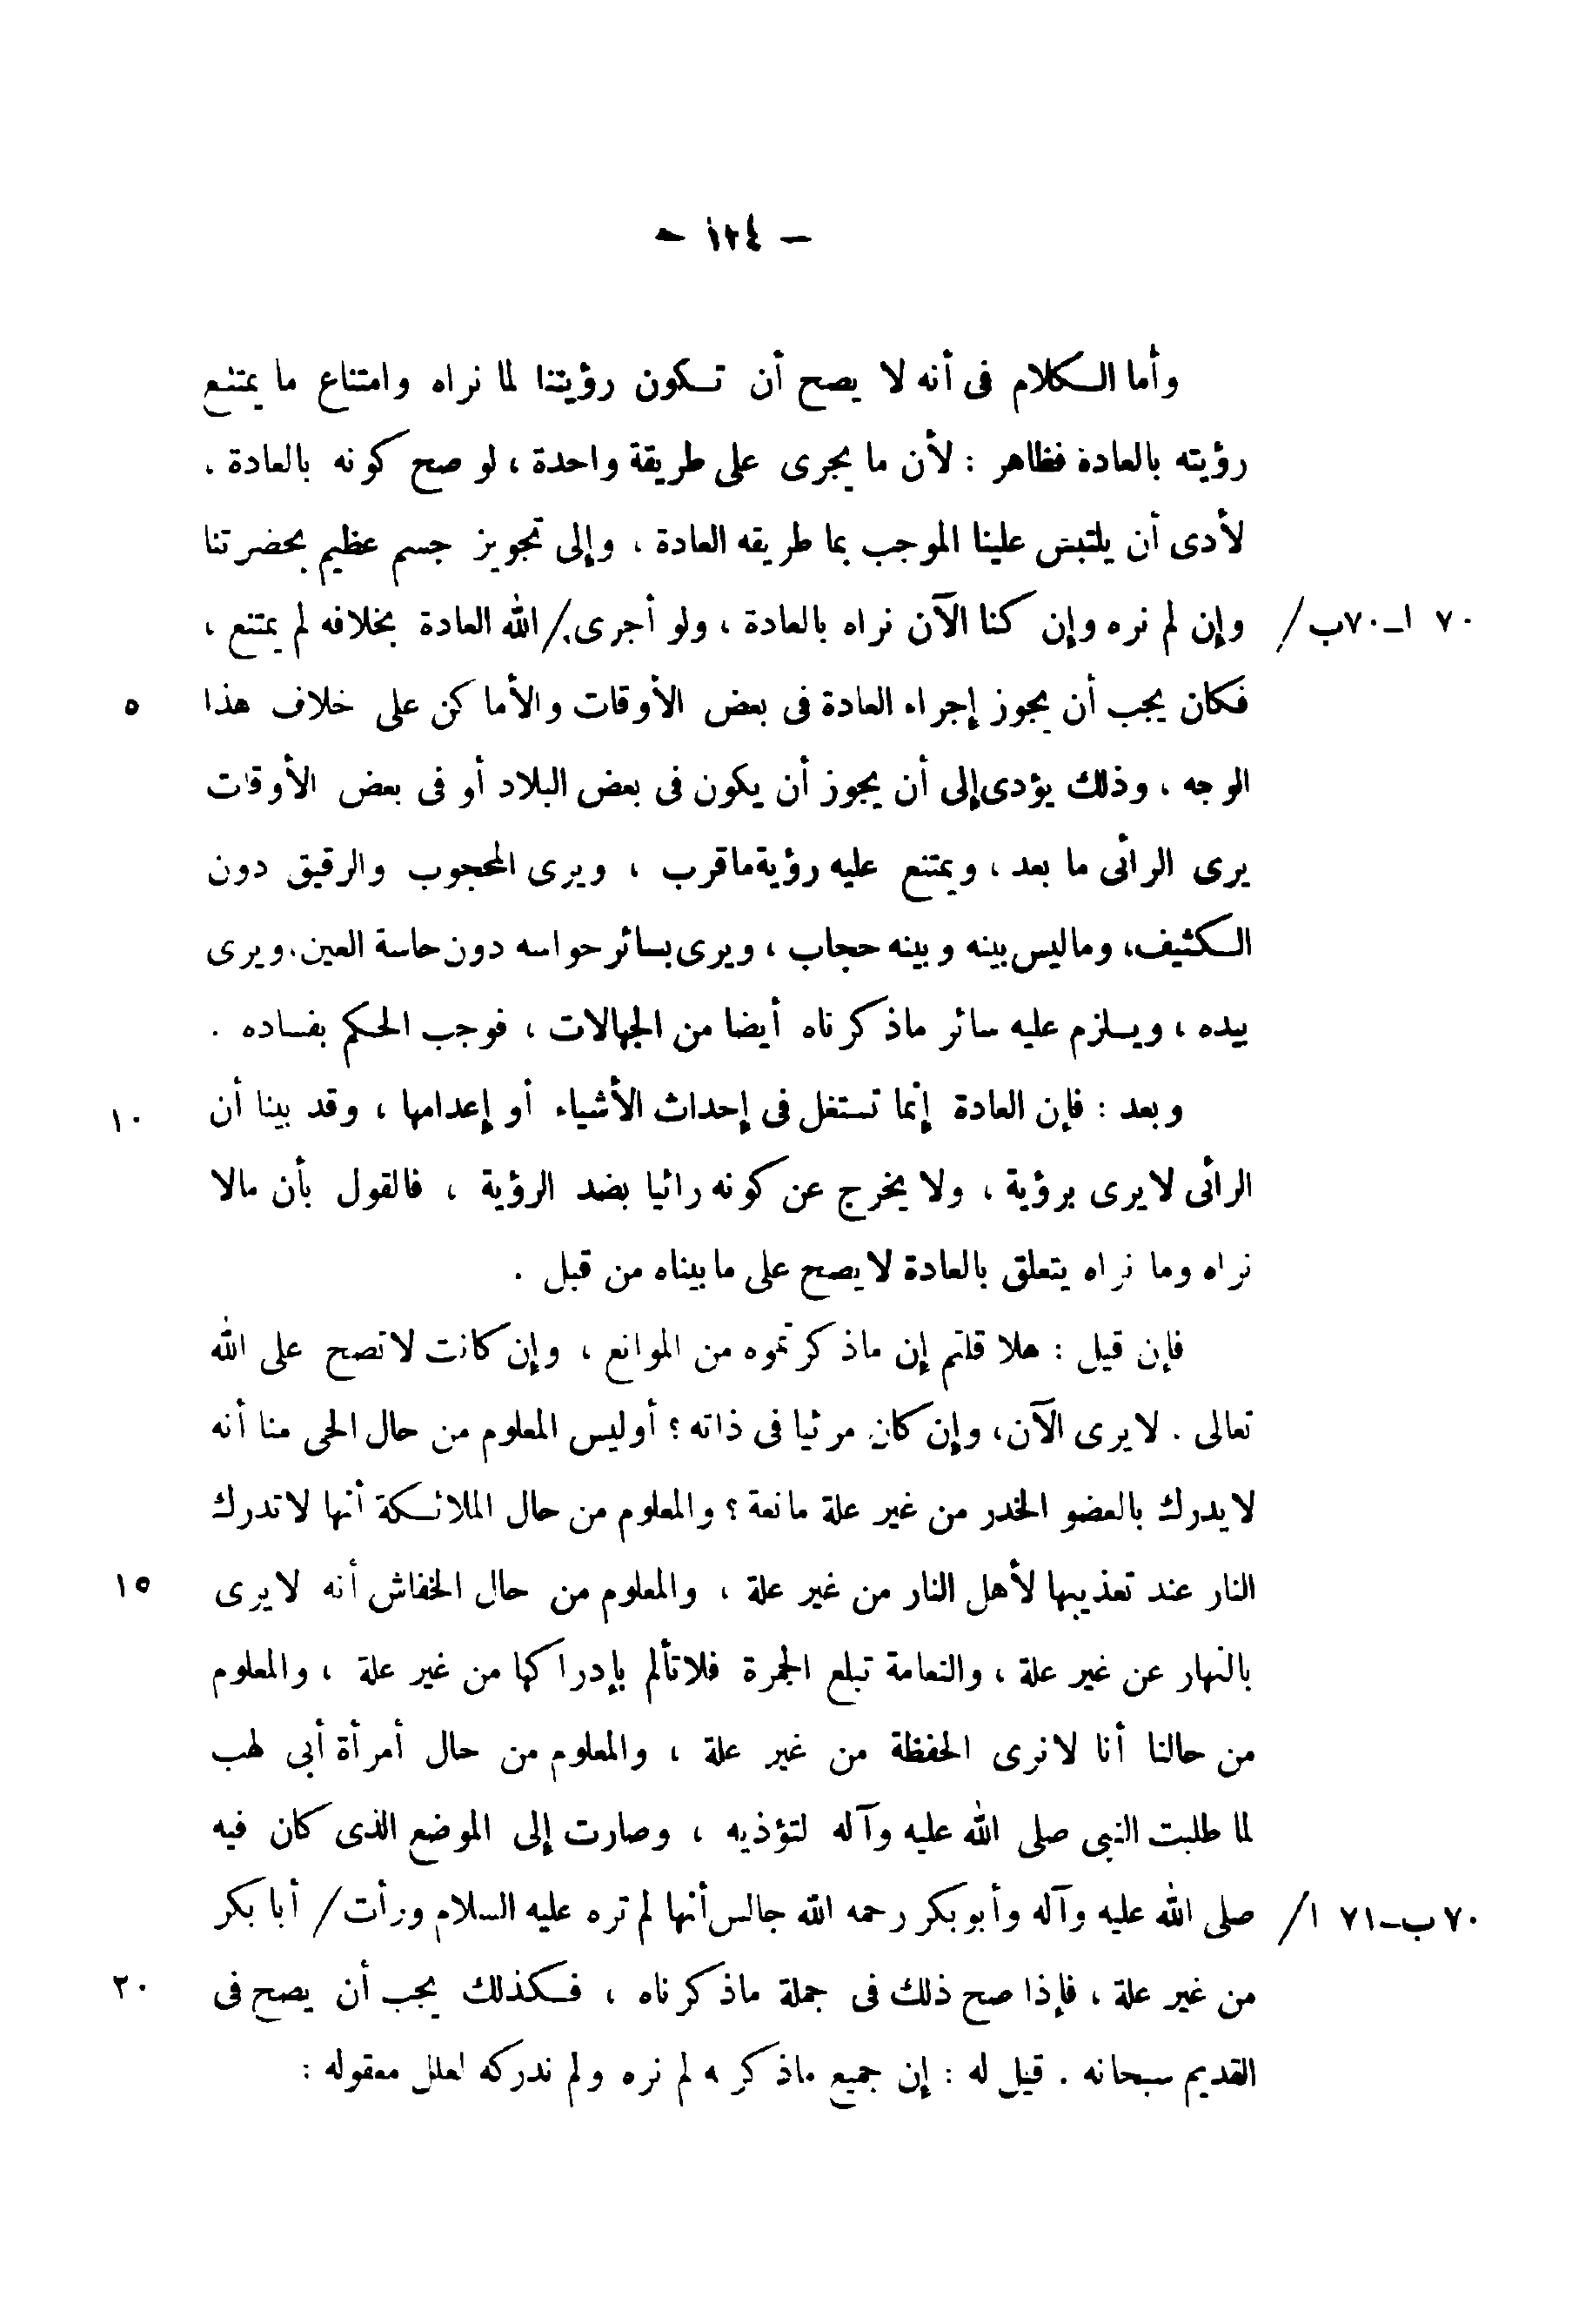 – ١٢٤ –
وأما الكلام فى أنه لا يصح أن تكون رؤيتنا لما نراه وامتناع ما يمتنع
رؤيته بالعادة فظاهر : لأن ما يجرى على طريقة واحدة ، لو صح كونه بالعادة .
لأدى أن يلتبس علينا الموجب بما طريقه العادة ، وإلى تجويز جسم عظيم بحضرتنا
٧٠ ا–٧٠ب / وإن لم نره وإن كنا الآن نراه بالعادة ، ولو أجرى / الله العادة بخلافه لم يمتنع ،
فكان يجب أن يجوز إجراء العادة فى بعض الأوقات والأماكن على خلاف هذا ٥
الوجه ، وذلك يؤدى إلى أن يجوز أن يكون فى بعض البلاد أو فى بعض الأوقات
يرى الرائى ما بعد ، ويمتنع عليه رؤية ما قرب ، ويرى المحجوب والرقيق دون
الكثيف، وما ليس بينه وبينه حجاب ، ويرى بسائر حواسه دون حاسة العين. ويرى
بيده ، ويلزم عليه سائر ماذكرناه أيضا من الجهالات ، فوجب الحكم بفساده .
وبعد : فإن العادة إنما تستغل فى إحداث الأشياء أو إعدامها ، وقد بينا أن ١٠
الرائى لا يرى برؤية ، ولا يخرج عن كونه رائيا بضد الرؤية ، فالقول بأن مالا
نراه وما نراه يتعلق بالعادة لا يصح على ما بيناه من قبل .
فإن قيل : هلا قلتم إن ماذكرتموه من الموانع ، وإن كانت لا تصح على الله
تعالى . لا يرى الآن، وإن كان مرئيا فى ذاته ؟ أوليس المعلوم من حال الحى منا أنه
لا يدرك بالعضو الخدر من غير علة مانعة ؟ والمعلوم من حال الملائكة أنها لا تدرك
النار عند تعذيبها لأهل النار من غير علة ، والمعلوم من حال الخفاش أنه لا يرى ١٥
بالنهار عن غير علة ، والنعامة تبلع الجمرة فلا تألم بإدراكها من غير علة ، والمعلوم
من حالنا أنا لا نرى الحفظة من غير علة ، والمعلوم من حال أمرأة أبى لهب
لما طلبت النبى صلى الله عليه وآله لتؤذيه ، وصارت إلى الموضع الذى كان فيه
٧٠ب–٧١ ا / صلى الله عليه وآله وأبو بكر رحمه الله جالس أنها لم تره عليه السلام ورأت / أبا بكر
من غير علة ، فإذا صح ذلك فى جملة ماذكرناه ، فكذلك يجب أن يصح فى ٢٠
القديم سبحانه . قيل له : إن جميع ماذكره لم نره ولم ندركه لعلل معقوله :